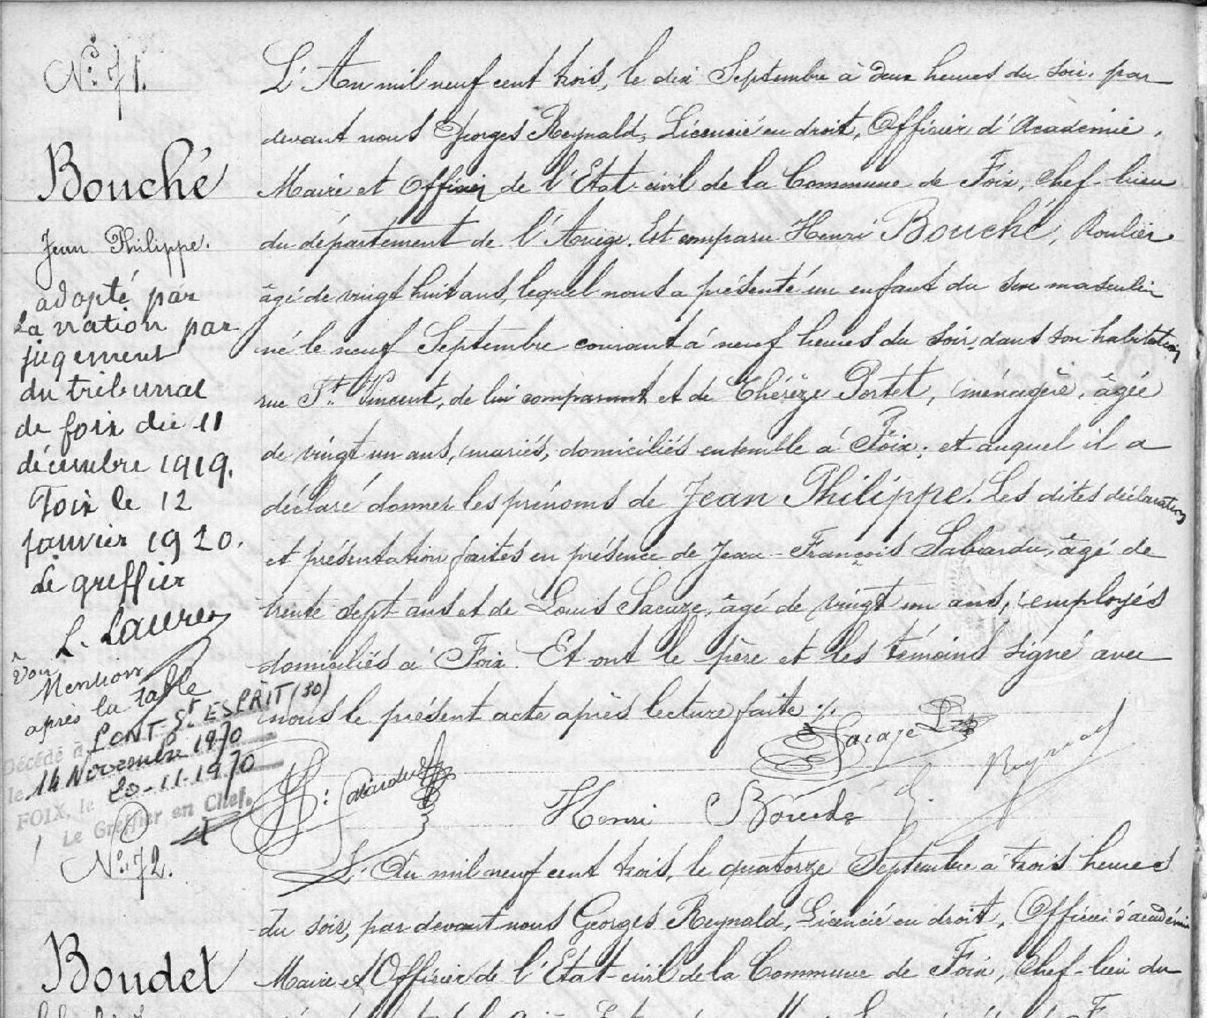 N° 71.
Bouché
Jean Philippe.
adopté par
la nation par
jugement
du tribunal
de foix du 11
décembre 1919.
Foix le 12
janvier 1920.
Le greffier
L. Laure
Voir
Mention
après la table
Décédé à PONT St ESPRIT (30)
le 14 Novembre 1970
FOIX, le 20-11-1970
Le Greffier en Chef,
L'An mil neuf cent trois, le dix Septembre à deux heures du soir, par
devant nous Georges Reynald, Licencié en droit, Officier d'Académie,
Maire et Officier de l'Etat-civil de la Commune de Foix, Chef-lieu
du département de l'Ariège, Est comparu Henri Bouché, Roulier
âgé de vingt huit ans, lequel nous a présenté un enfant du sexe masculin
né le neuf Septembre courant à neuf heures du soir, dans son habitation
rue St. Vincent, de lui comparant et de Thérèze Portet, ménagère, âgée
de vingt un ans, mariés, domiciliés ensemble à Foix, et auquel il a
déclaré donner les prénoms de Jean Philippe. Les dites déclaration
et présentation faites en présence de Jean-François Sabardu, âgé de
trente sept ans et de Louis Sacaze, âgé de vingt un ans, employés
domiciliés à Foix. Et ont le père et les témoins signé avec
nous le présent acte après lecture faite ./.
Sacaze L
Henri Bouché
N° 72.
Boudet
L'An mil neuf cent trois, le quatorze Septembre à trois heures
du soir, par devant nous Georges Reynald, Licencié en droit, Officier d'académie
Maire et Officier de l'Etat-civil de la Commune de Foix, Chef-lieu du